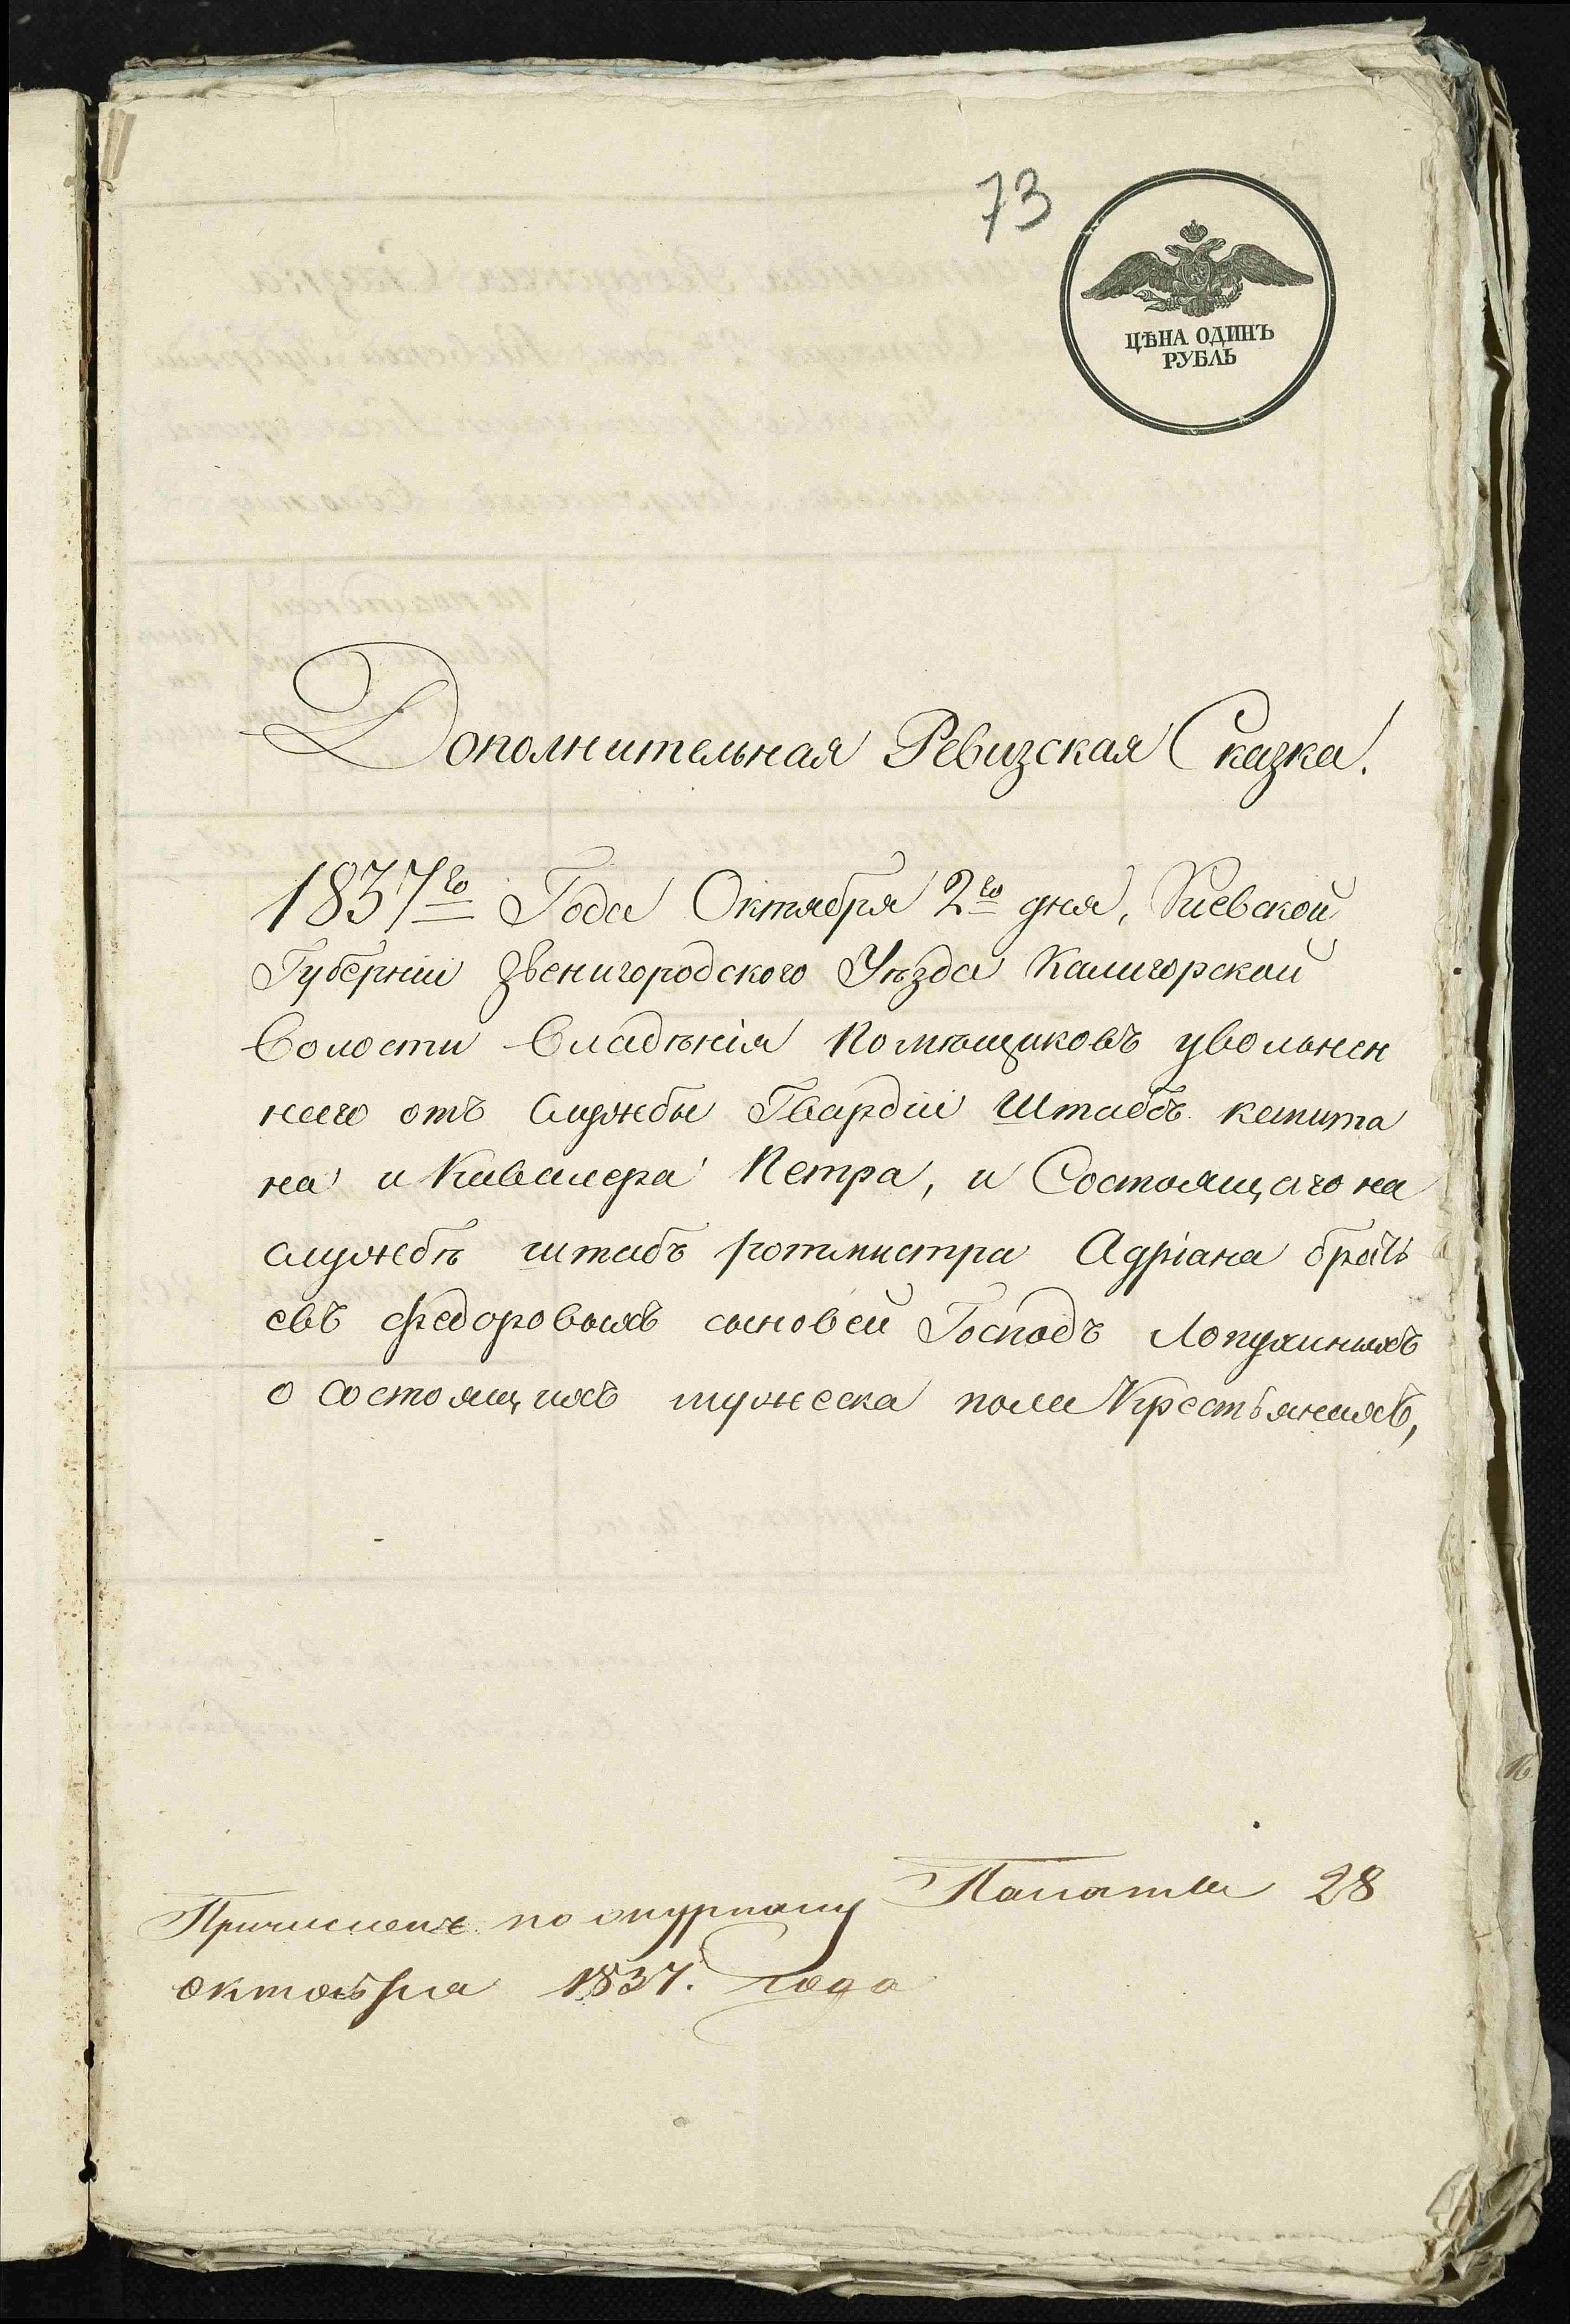 73
ЦѢНА ОДИНЪ
РУБЛЬ
Дополнительная Ревизская Сказка.
1837го Года Октября 2го дня, Киевской
Губерніи Звенигородского Уѣзда Калигорской
Волости Владѣнія Помѣщиковъ увольнен
наго отъ Службы Гвардіи Штабъ капита
на и Кавалера Петра, и Состоящаго на
службѣ штабъ ротмистра Адріана брать
евъ Федоровыхъ сыновей Господъ Лопухиныхъ
о состоящихъ мужеска пола Крестьянахъ,
Причисленъ по журналу Палаты 28
октября 1837. года
16